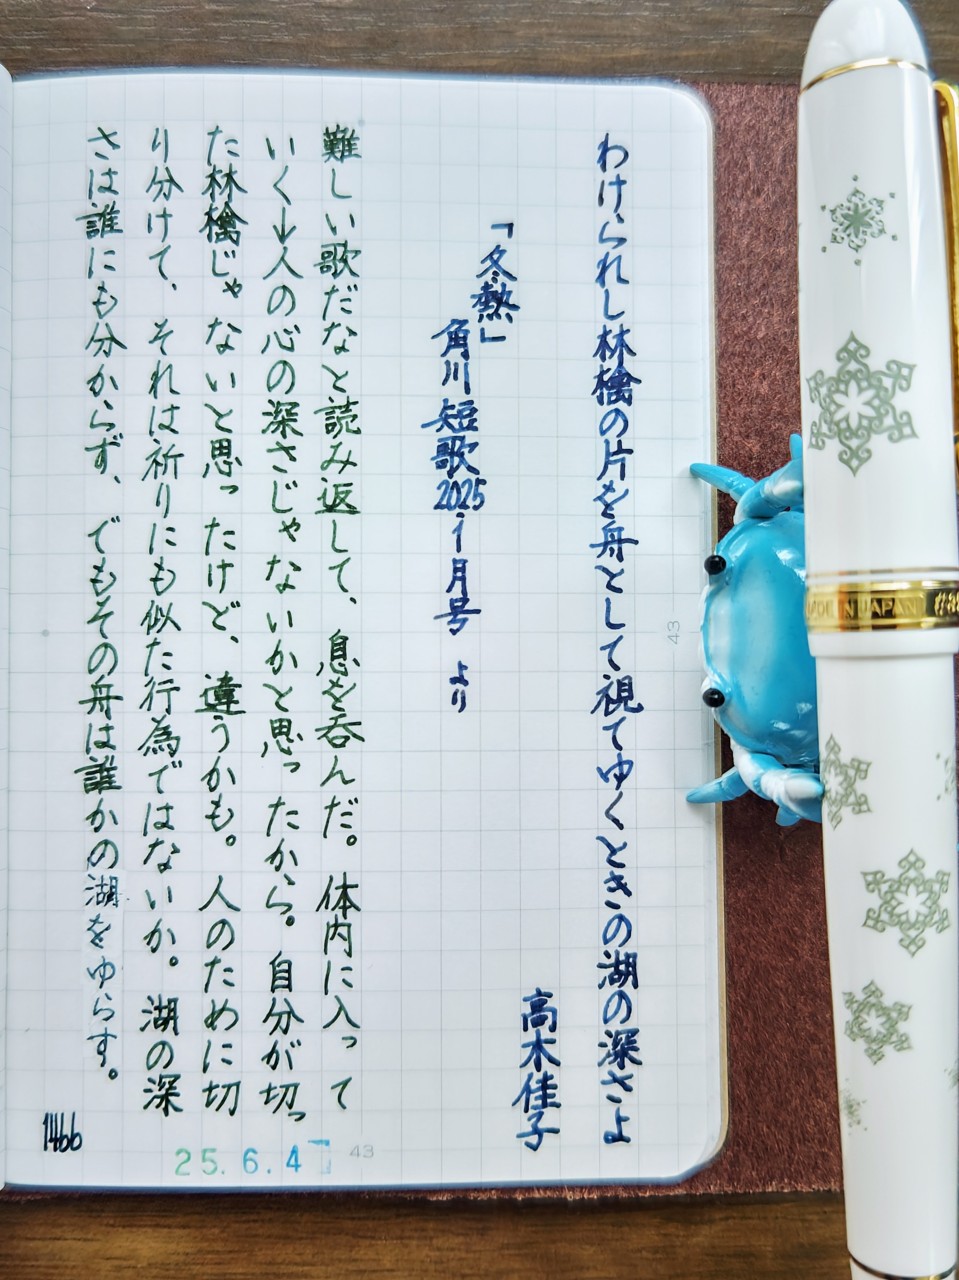 わけられし林檎の片を舟として視てゆくときの湖の深さよ
高木佳子
「冬熱」
角川短歌2025.1月号 より
難しい歌だなと読み返して、息を呑んだ。体内に入って
いく↓人の心の深さじゃないかと思ったから。自分が切っ
た林檎じゃないと思ったけど、違うかも。人のために切
り分けて、それは祈りにも似た行為ではないか。湖の深
さは誰にも分からず、でもその舟は誰かの湖をゆらす。
1466
25.6.4
43
43
MADE IN JAPAN